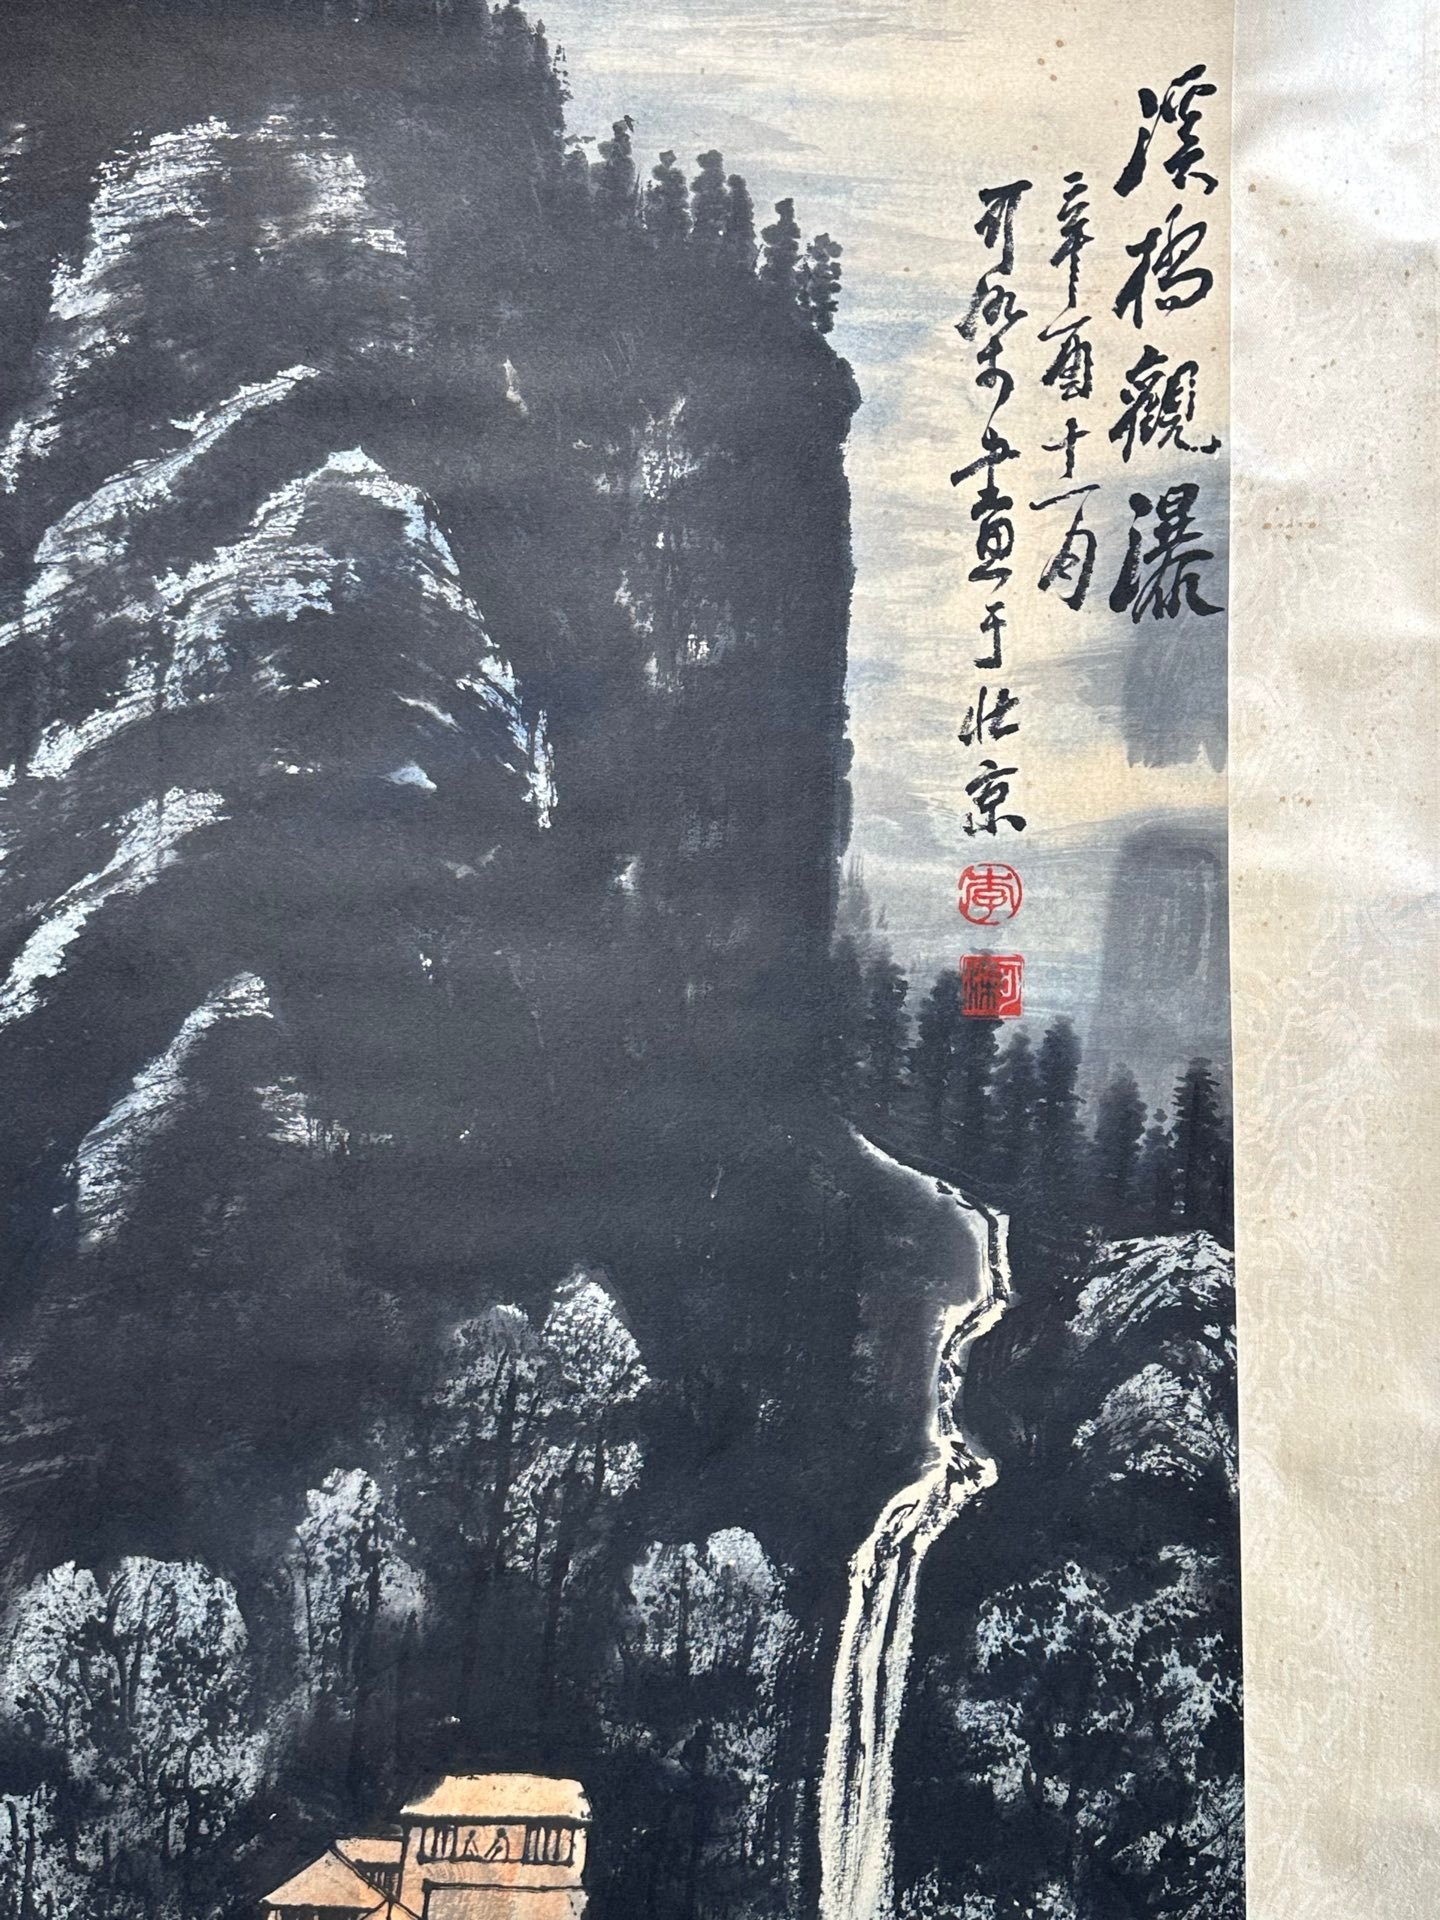 溪橋觀瀑
辛酉十一月
可染書畫于北京
李
可染